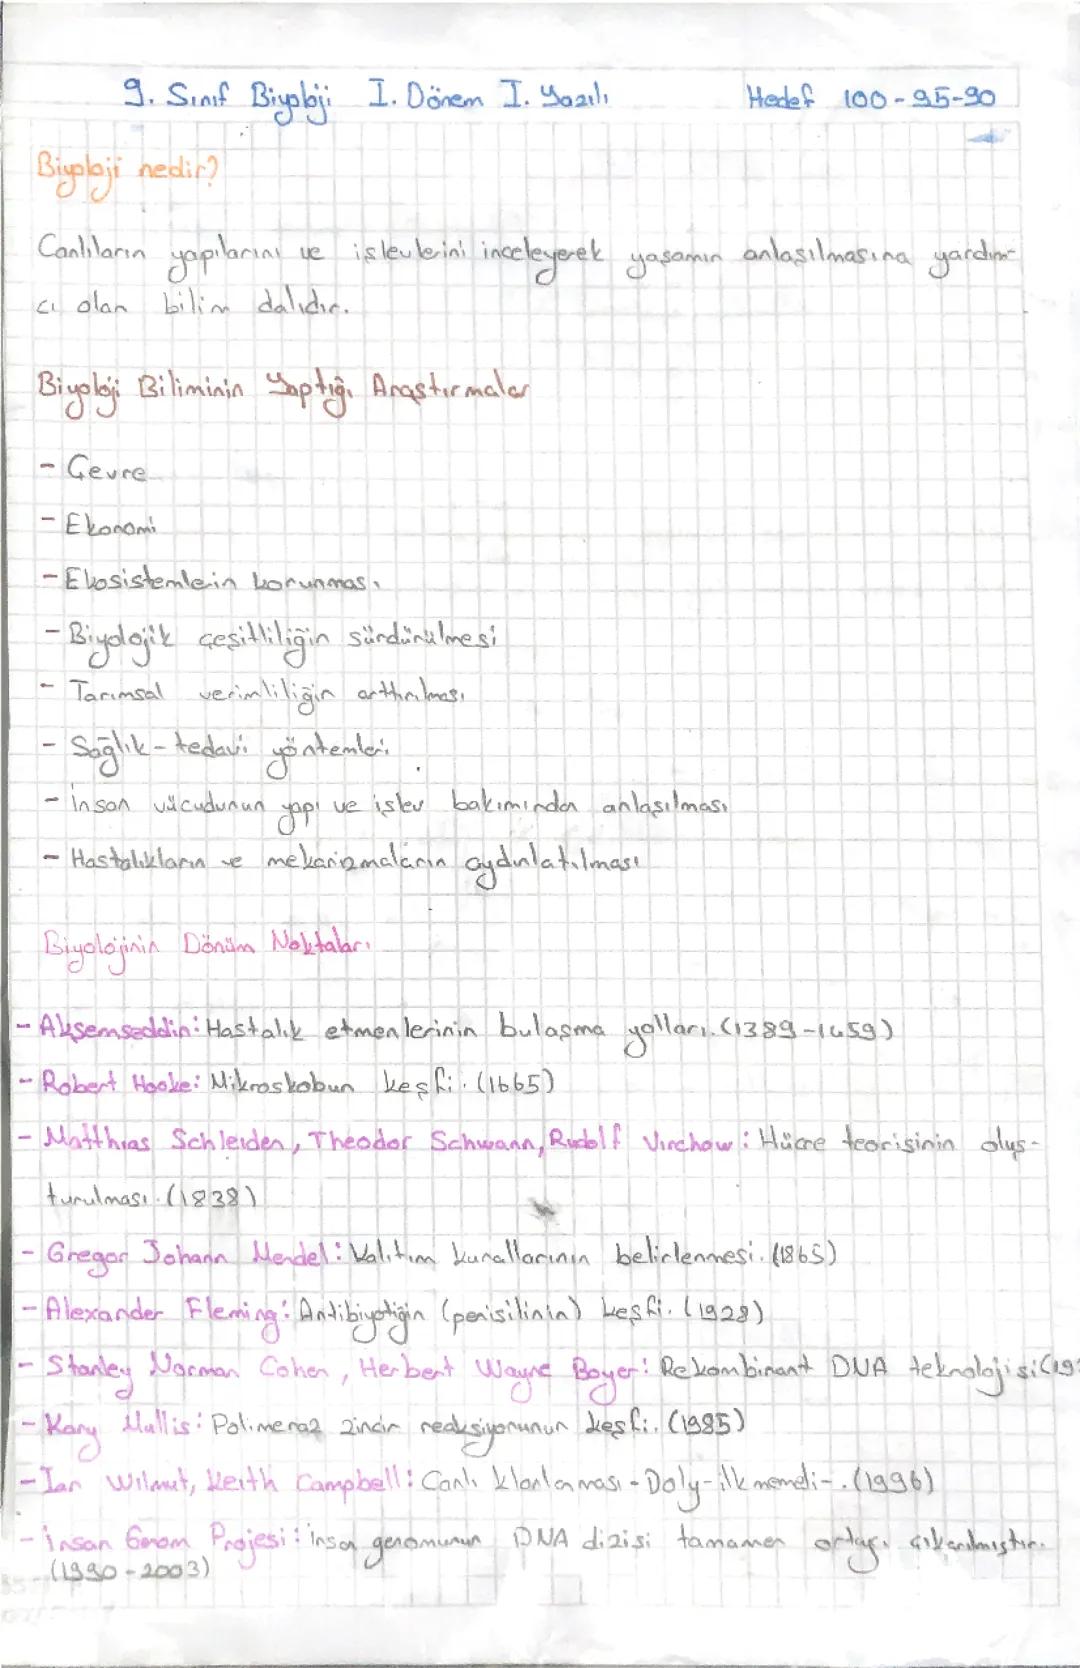 9. Sınıf Biyoloji I. Dönem I. Yazılı Hedef 100-95-90
Biyoloji nedir?
Canlıların yapılarını ve işlevlerini inceleyerek yaşamın anlaşılmasına yardım-
cı olan bilim dalıdır.
Biyoloji Biliminin Yaptığı Araştırmalar
- Çevre
- Ekonomi
- Ekosistemlerin korunması
- Biyolojik çeşitliliğin sürdürülmesi
- Tarımsal verimliliğin arttırılması
- Sağlık-tedavi yöntemleri
- İnsan vücudunun yapı ve işlev bakımından anlaşılması
- Hastalıkların ve mekanizmaların aydınlatılması
Biyolojinin Dönüm Noktaları
- Akşemseddin: Hastalık etmenlerinin bulaşma yolları. (1389-1459)
- Robert Hooke: Mikroskobun keşfi. (1665)
- Matthias Schleiden, Theodor Schwann, Rudolf Virchow: Hücre teorisinin oluş-
turulması. (1838)
- Gregor Johann Mendel: Kalıtım kurallarının belirlenmesi. (1865)
- Alexander Fleming: Antibiyotiğin (penisilinin) keşfi. (1928)
- Stanley Norman Cohen, Herbert Wayne Boyer: Rekombinant DNA teknolojisi
- Kary Mullis: Polimeraz zincir reaksiyonunun keşfi. (1985)
- Ian Wilmut, Keith Campbell: Canlı klonlanması - Doly-ilk memeli-. (1996)
- İnsan Genom Projesi: İnsan genomunun DNA dizisi tamamen ortaya çıkarılmıştır.
(1990-2003)